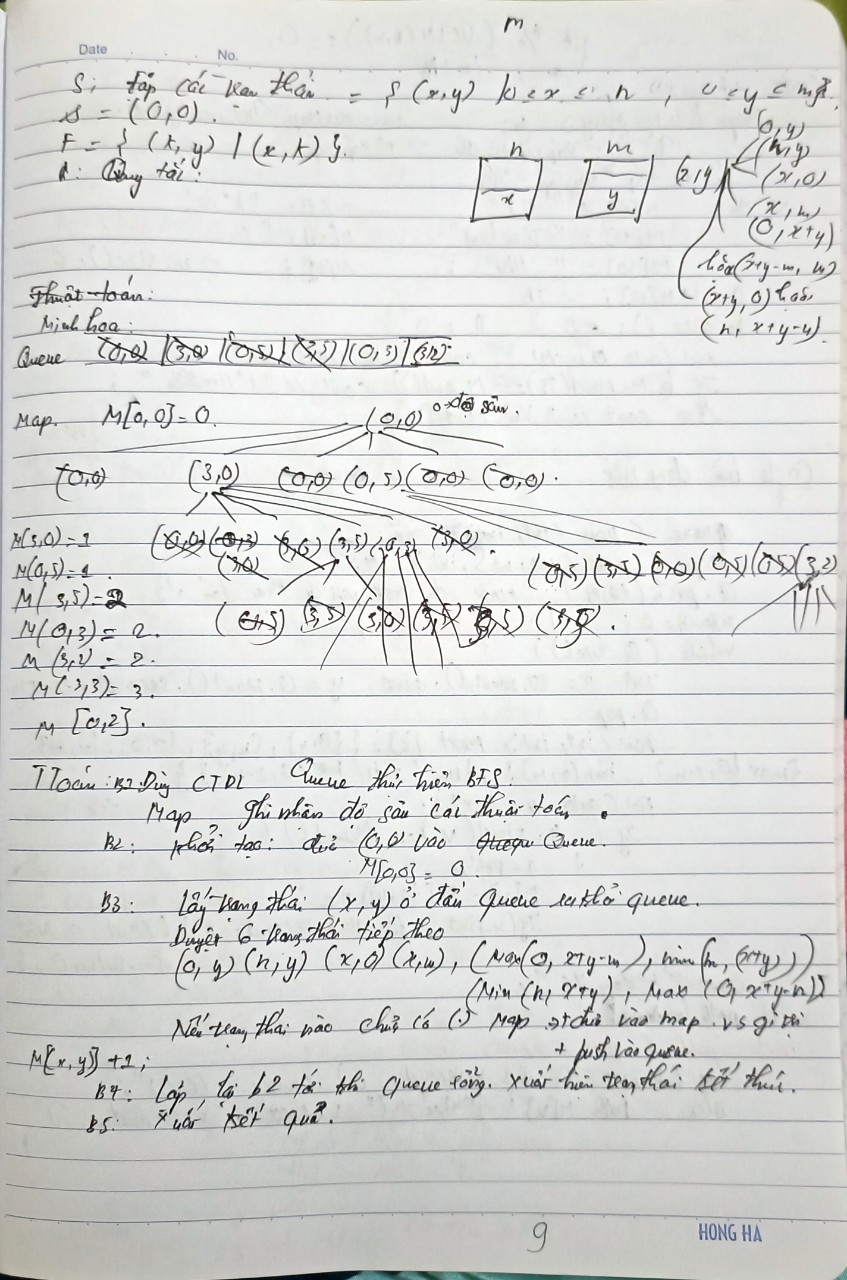 m
Date No.
S: tập các trạn thái = { (x,y) | 0 ≤ x ≤ n , 0 ≤ y ≤ m }.
s = (0,0).
F = { (k, y) | (x, k) }.
Quy tắc:
n m
x y
(x,y)
(0,y)
(n,y)
(x,0)
(x, m)
(0, x+y)
hoặc (x+y-m, m)
(x+y, 0) hoặc
(n, x+y-n)
Thuật toán:
Minh hoạ:
Queue (0,0) | (3,0) | (0,5) | (3,5) | (0,3) | (3,2)
Map. M[0,0] = 0. (0,0) 0 → độ sâu.
(0,0) (3,0) (0,0) (0,5) (0,0) (0,0).
M(3,0) = 1 (0,0) (0,3) (3,5) (0,3) (3,0).
(3,0)
M(0,5) = 1 (0,5) (3,5) (0,0) (0,5) (0,5) (3,2)
M( 3,5) = 2 (0,5) (3,5) (3,0) (3,5) (3,5) (3,0).
M(0,3) = 2.
M (3,2) = 2.
M(3,3) = 3.
M [0,2].
TToán: B1 Dùng CTDL Queue thực hiện BFS.
Map ghi nhận độ sâu các thuật toán.
B2: khởi tạo: đưa (0,0) vào Queue.
M[0,0] = 0.
B3: Lấy trạng thái (x,y) ở đầu Queue ra khỏi queue.
Duyệt 6 trạng thái tiếp theo
(0, y) (n, y) (x,0) (x,m), (Max(0, x+y-m), min(m, (x+y)))
(Min (n, x+y), Max (0, x+y-n))
Nếu trạng thái nào chưa có (.) Map → đưa vào map vs giá trị
M[x, y] + 1; + push vào queue.
B4: Lặp lại b2 tới khi Queue rỗng. xuất hiện trạng thái kết thúc.
B5: Xuất kết quả.
9
HONG HA